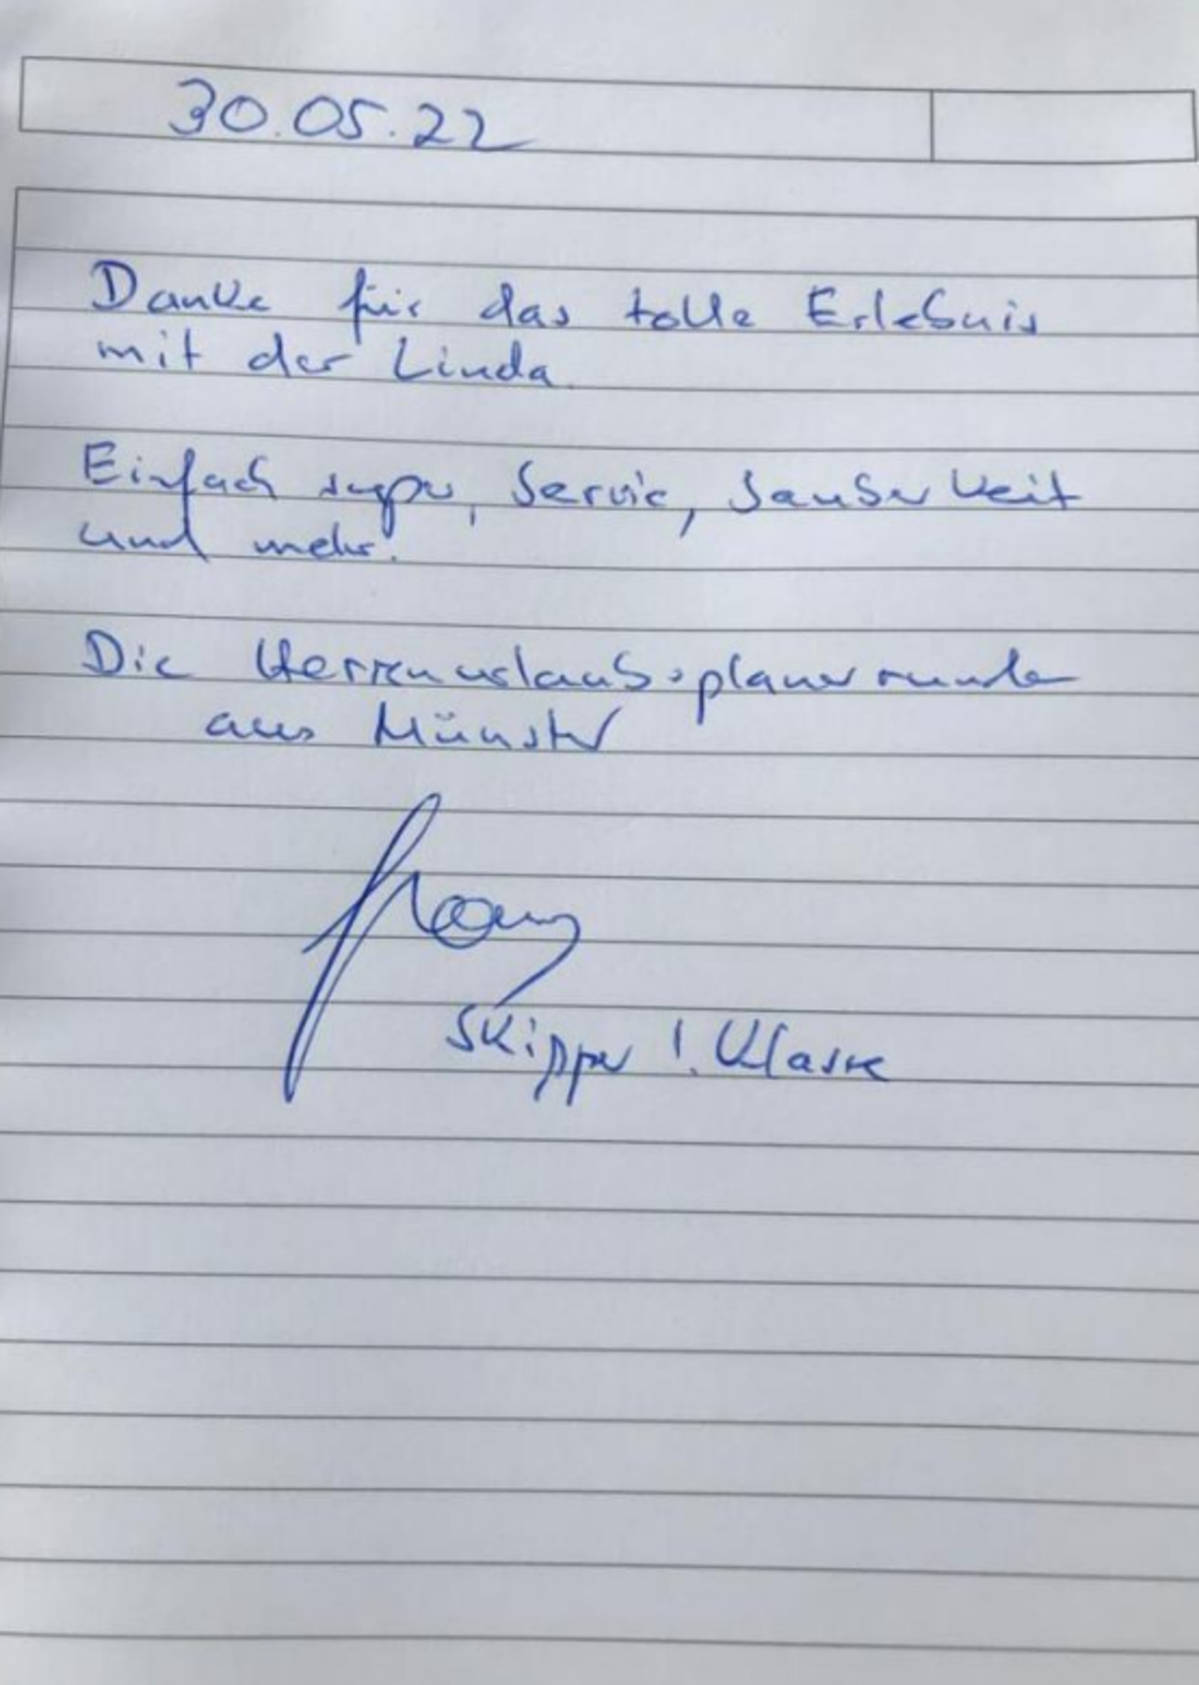 30.05.22
Danke für das tolle Erlebnis
mit der Linda
Einfach super, Servic, Sauberkeit
und mehr.
Die Herrenurlaubsplanerrunde
aus Münster
Skipper 1. Klasse